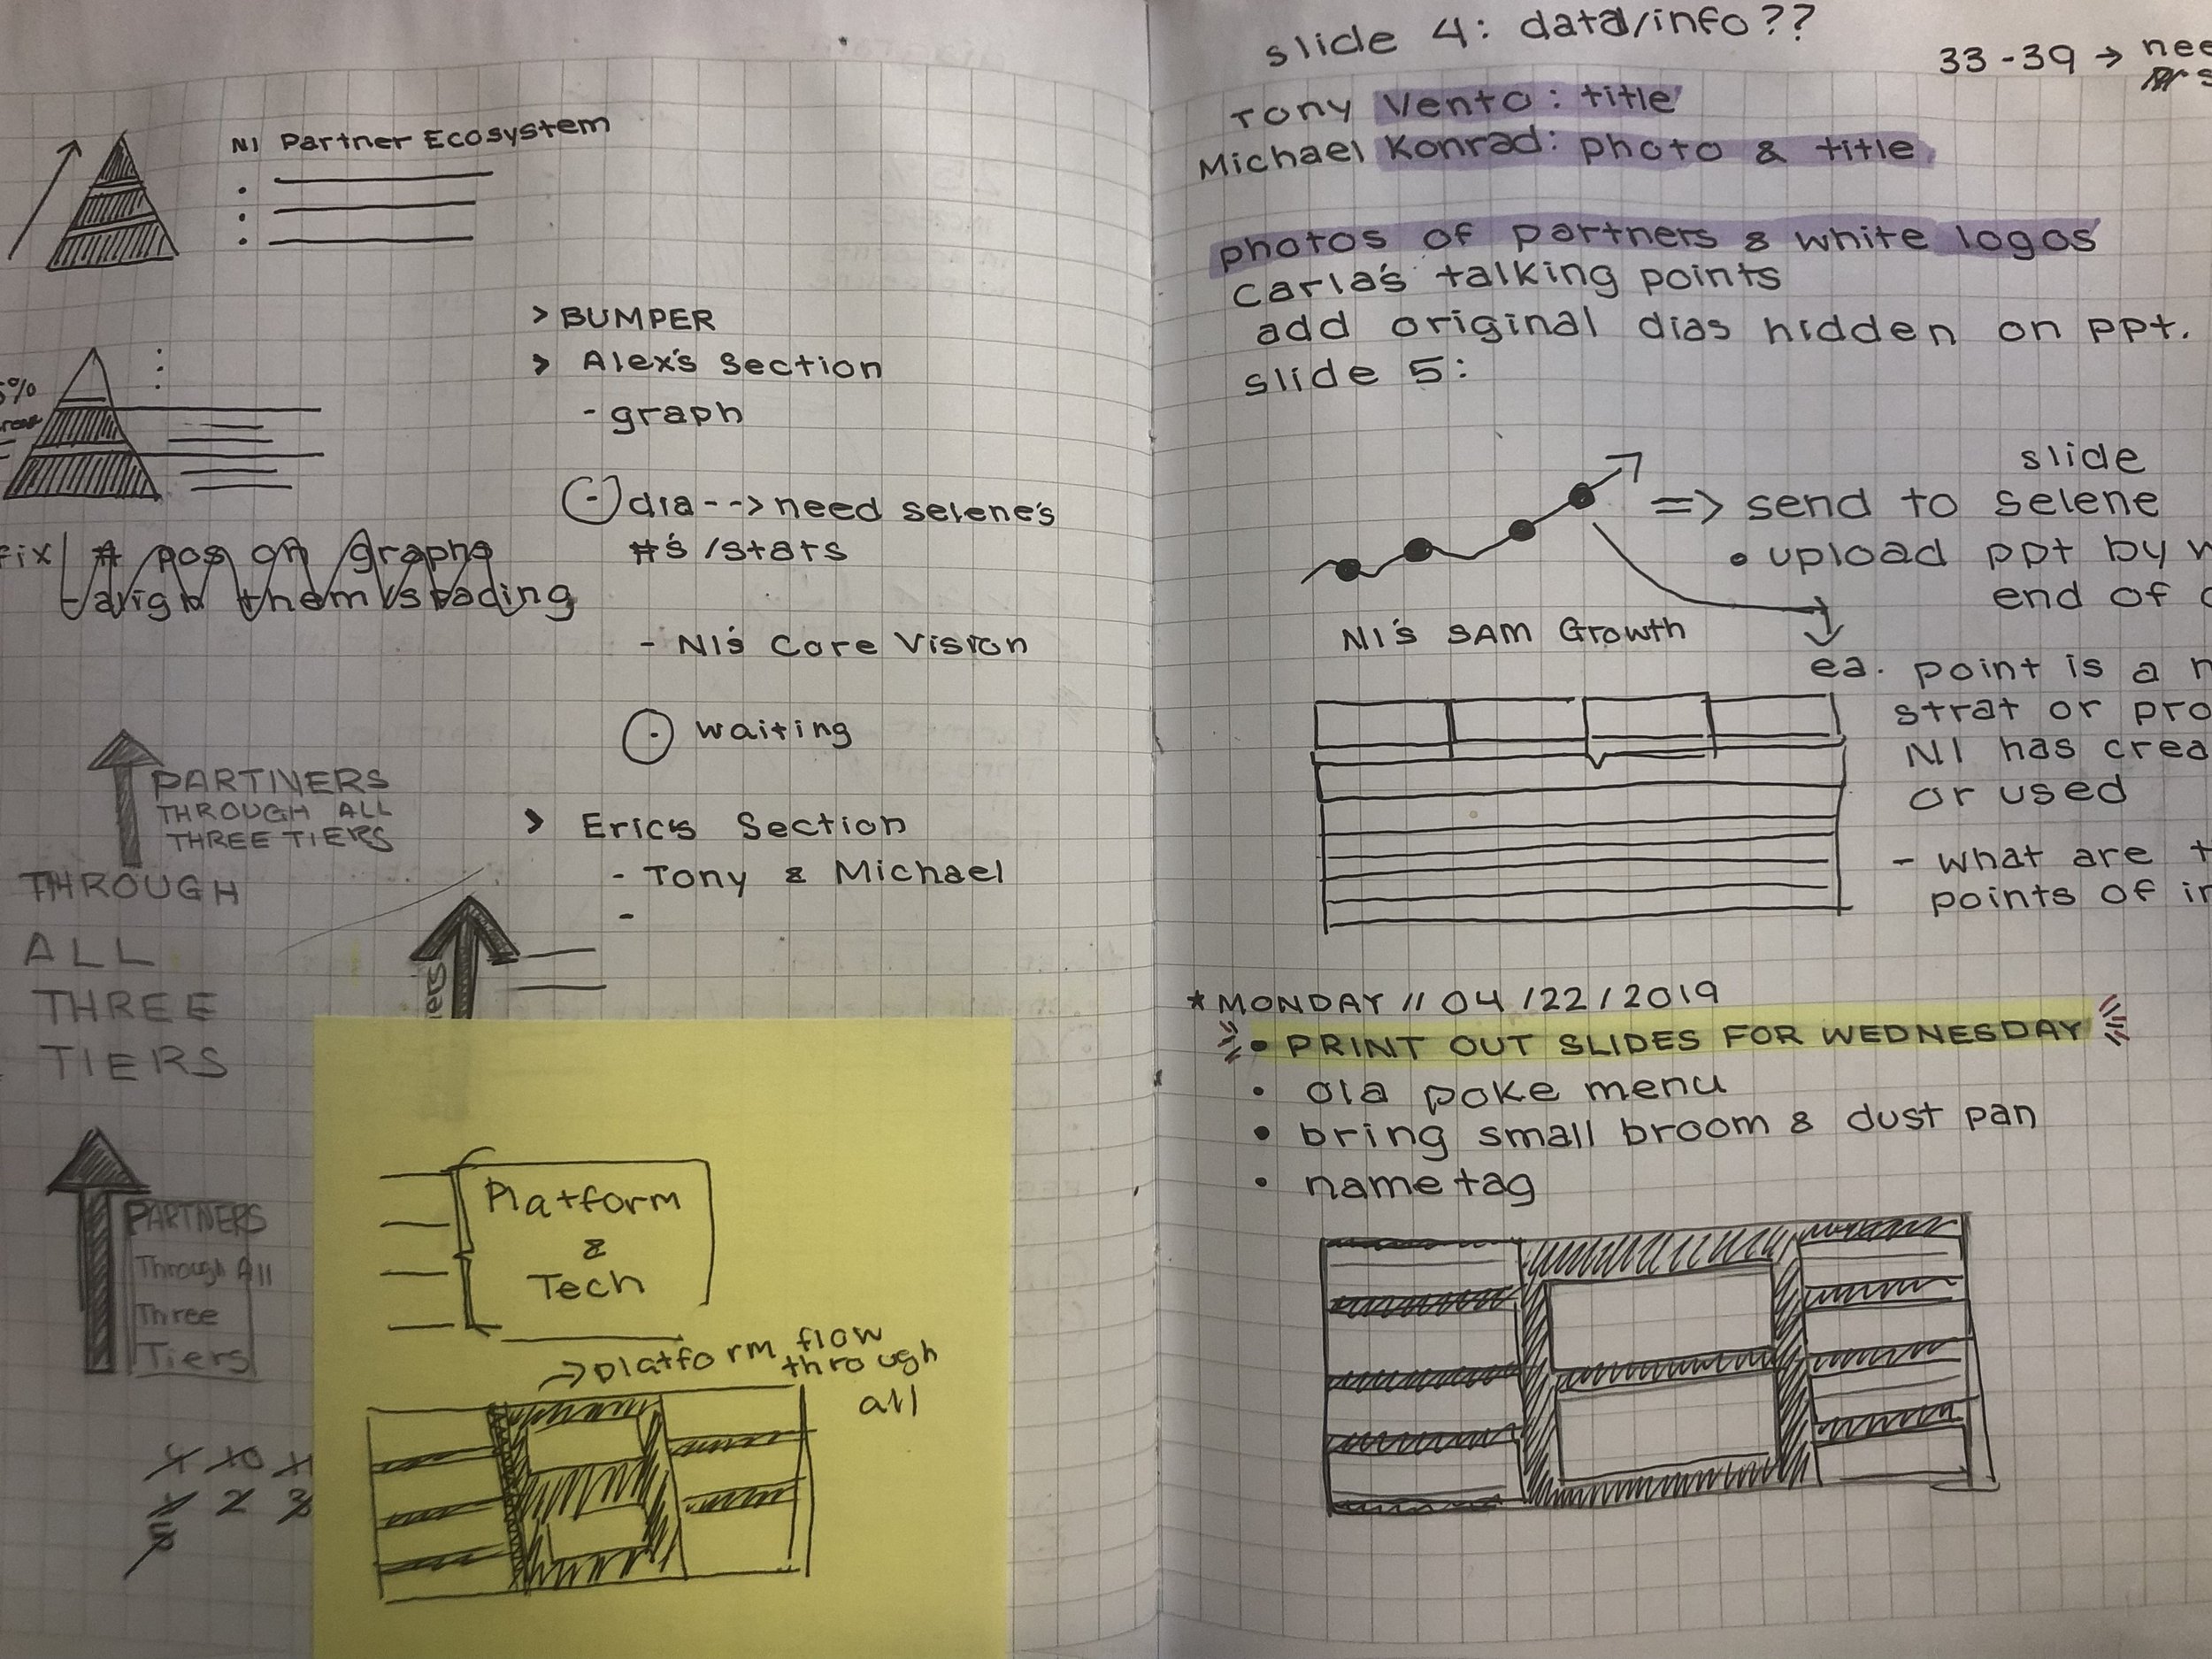 NI Partner Ecosystem
5%
fix # pos on graphs
PARTNERS
THROUGH ALL
THREE TIERS
THROUGH
ALL
THREE
TIERS
PARTNERS
Through All
Three
Tiers
> BUMPER
> Alex's Section
- graph
dia --> need Selene's
#'s / stats
- NI's Core Vision
waiting
> Eric's Section
- Tony & Michael
-
Platform
&
Tech
→ platform flow
through
all
slide 4: data/info??
33-39 →
Tony Vento: title
Michael Konrad: photo & title
photos of partners & white logos
Carla's talking points
add original dias hidden on ppt.
slide 5:
slide
=> send to selene
• upload ppt by
end of
NI's SAM Growth
ea. point is a
strat or
NI has
or used
- what are
points of
* MONDAY // 04/22/2019
• PRINT OUT SLIDES FOR WEDNESDAY
• ola poke menu
• bring small broom & dust pan
• name tag